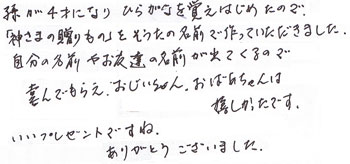 孫が4才になり ひらがなを覚えはじめたので、
「神さまの贈りもの」をそうたの名前で作っていただきました。
自分の名前やお友達の名前が出てくるので
喜んでもらえ、おじいちゃん、おばあちゃんは
嬉しかったです。
いいプレゼントですね。
ありがとうございました。